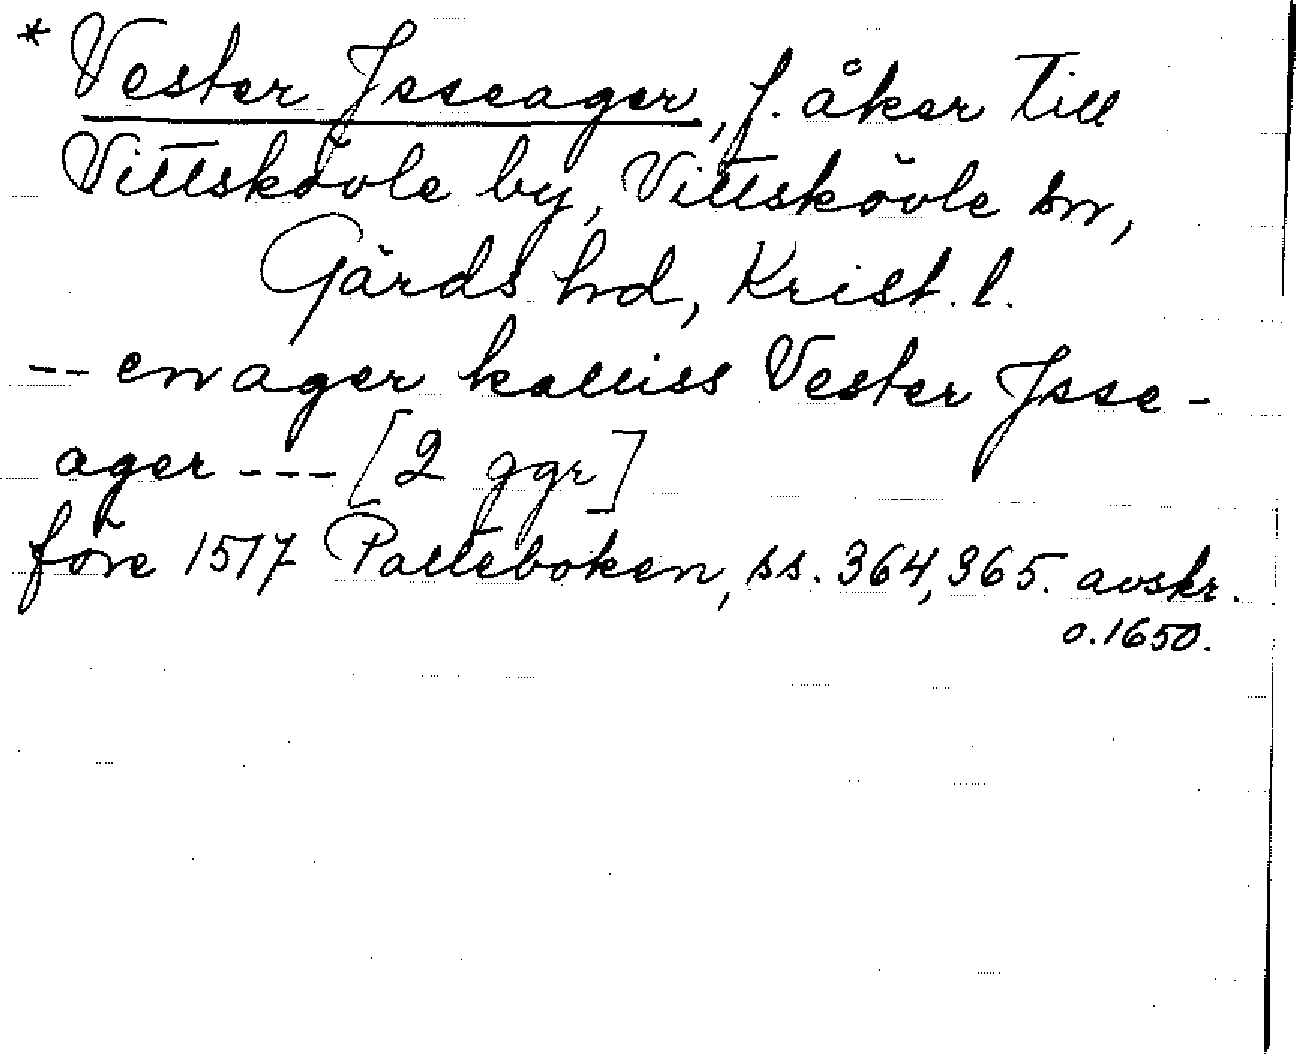 * Vester Jsseager, f. åker till
Vittskövle by, Vittskövle sn,
Gärds hd, Krist. l.
-- en ager kalliss Vester Jsse-
ager --- [2 ggr]
före 1517 Palteboken, ss. 364, 365. avskr.
o. 1650.